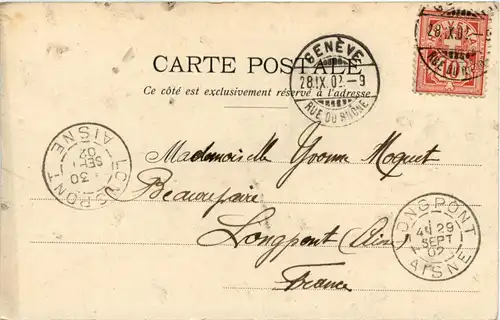 CARTE POSTALE
Ce côté est exclusivement réservé à l'adresse
GENÈVE
28.IX.02.-9
RUE DU RHÔNE
28.IX.02.-9
RUE DU RHÔNE
LONGPONT
30
SEPT
02
AISNE
Mademoiselle Yvonne Moquet
Longpont (Aisne)
France
LONGPONT
29
SEPT
02
AISNE